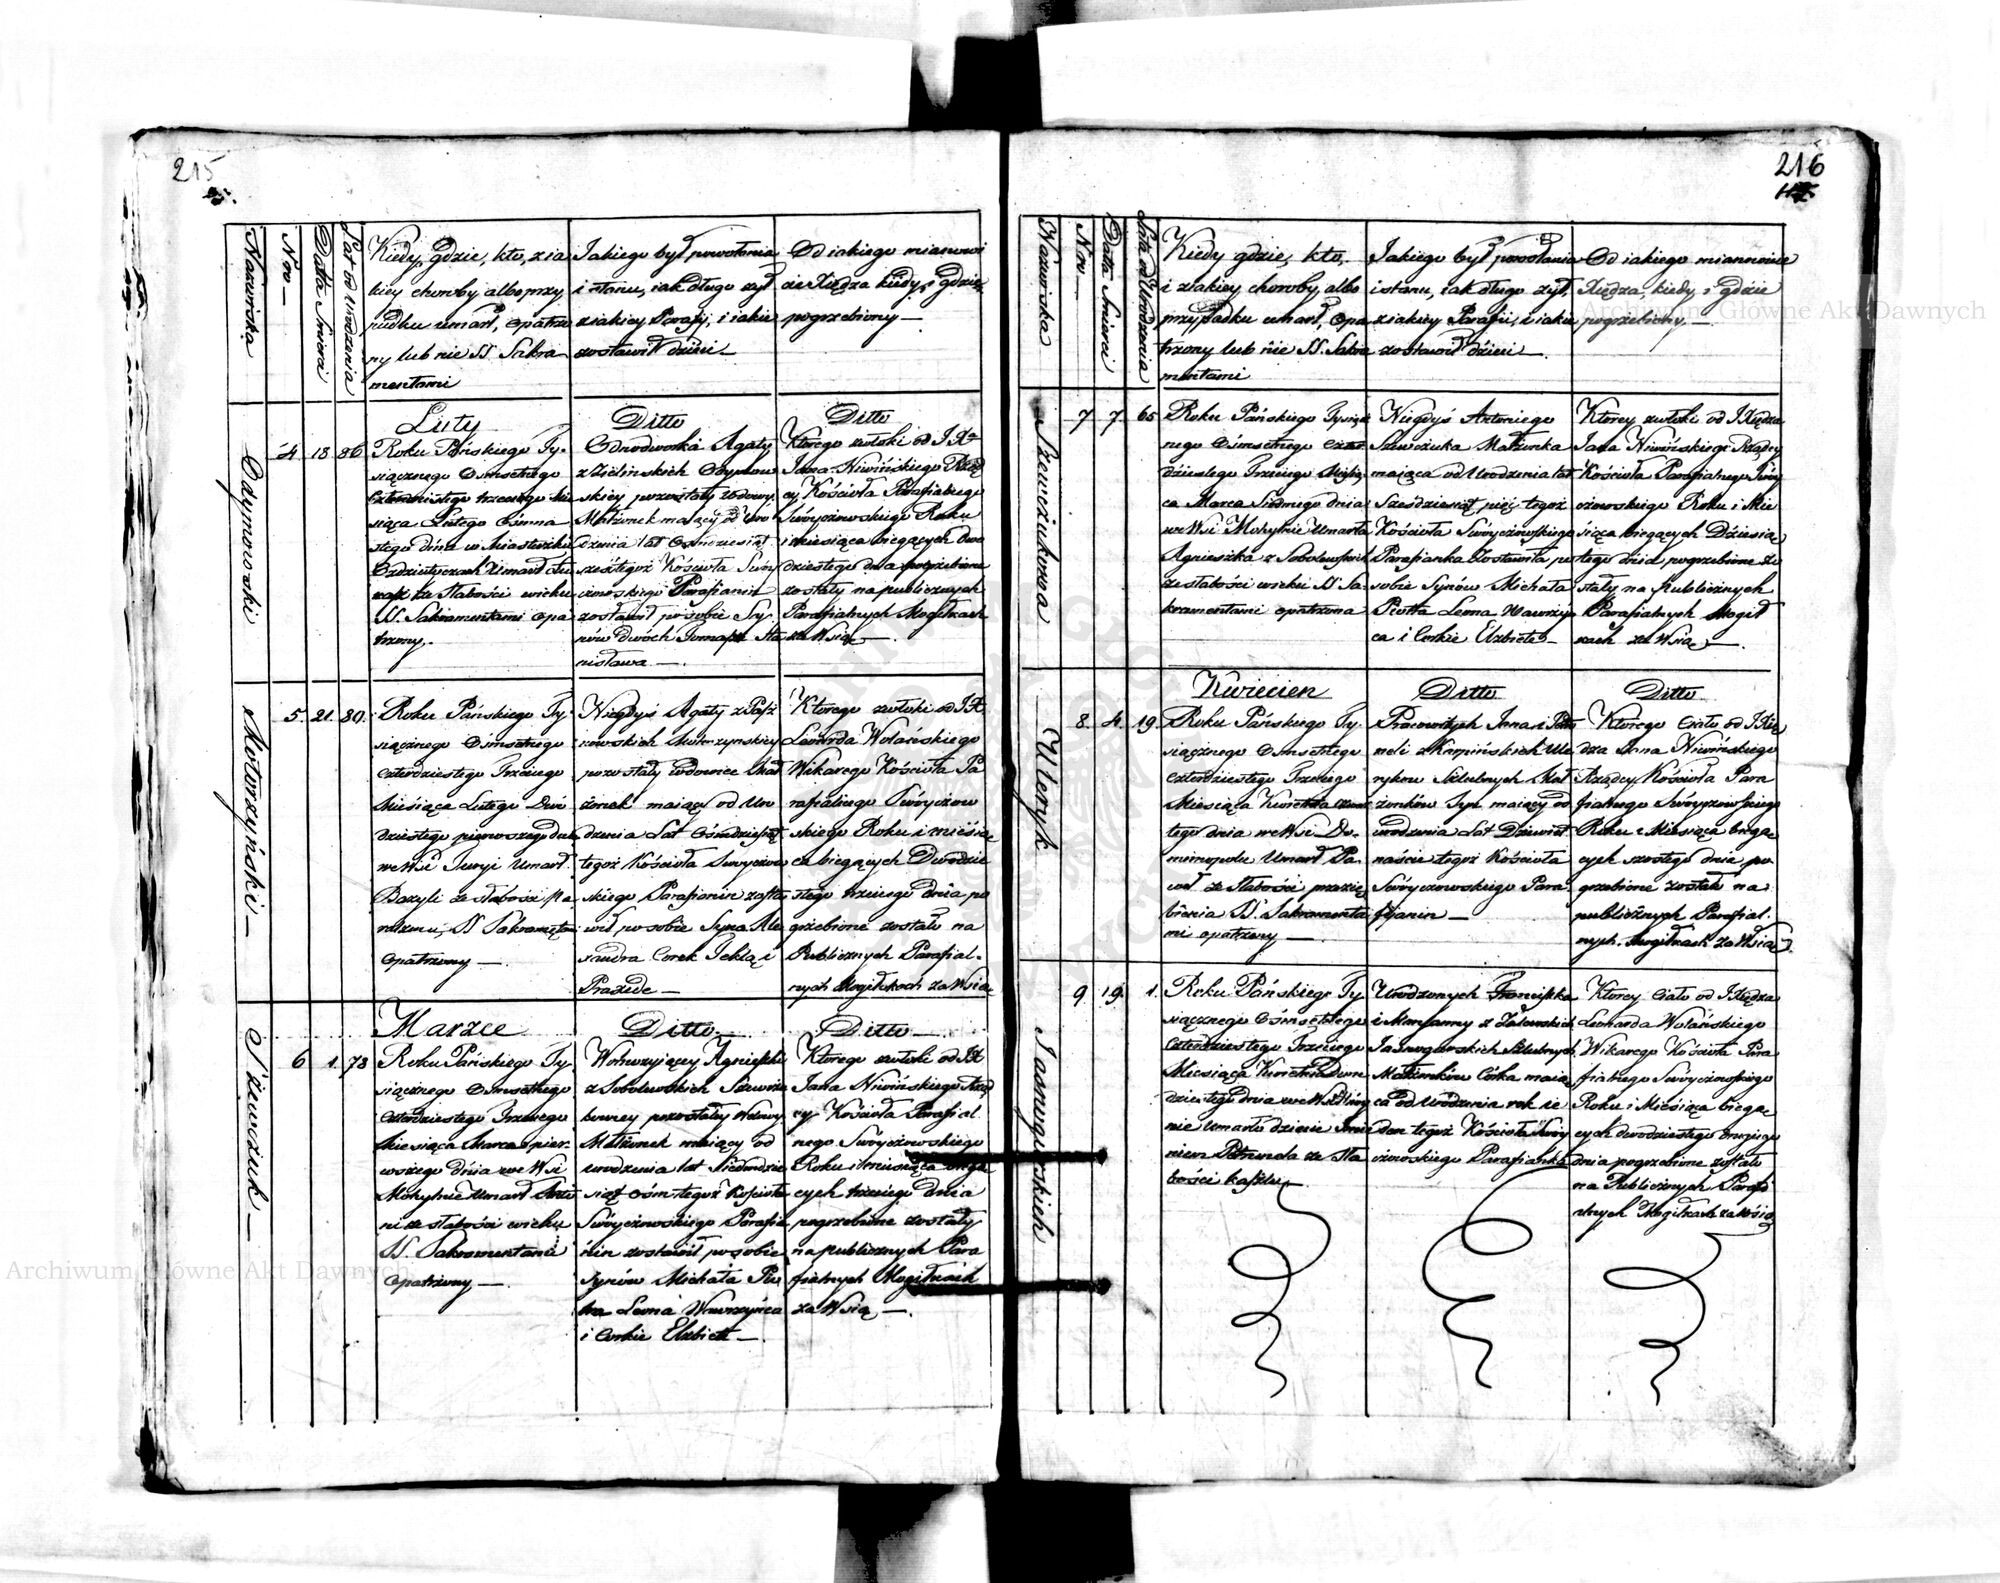 215
Nazwiska
Nro
Data Śmierci
Lat od Urodzenia
Kiedy, gdzie, kto, z ia
kiey choroby albo przy
padku umarł, opatrzo
ny lub nie SS. Sakra
mentami
Jakiego był powołania
i stanu, iak długo żył
z iakiey Parafii, i iakie
zostawił dzieci
Od iakiego mianowi
cie Xiędza kiedy i gdzie
pogrzebiony
4
18
86
Luty
Roku Pańskiego Ty
siącznego Osmsetnego
Czterdziestego trzeciego Mie
siąca Lutego Osmna
stego dnia w Miasteczku
umarł
ze Słabości wieku
SS. Sakramentami opa
trzony
Ditto
Agaty
z Zielińskich
skiey pozostały Wdowy
Małżonek maiący od Uro
dzenia lat Osmdziesiąt
sześć tegoż Kościoła
Parafianin
zostawił po sobie Sy
nów dwoch Tomasza Sta
nisława
Ditto
Ktorego zwłoki od J X
Jana Niwińskiego Rząd
cy Kościoła Parafialnego
Roku
i miesiąca bieżących Dwu
dziestego dnia pogrzebione
zostały na publicznych
Parafialnych Mogiłkach
za Wsią
5
21
80
Roku Pańskiego Ty
siącznego Osmsetnego
Czterdziestego Trzeciego
Miesiąca Lutego Dwu
dziestego pierwszego dnia
we Wsi umarł
Bazyli ze słabości
SS Sakramentami
opatrzony
Niegdyś Agaty
pozostały Wdowiec Mał
żonek maiący od Uro
dzenia Lat Osmdziesiąt
tegoż Kościoła
skiego Parafianin zosta
wił po sobie Syna Ale
xandra Corek Teklą i
Praxede
Ktorego zwłoki od J X
Leonarda Wolańskiego
Wikarego Kościoła Pa
rafialnego
skiego Roku i miesią
ca bieżących Dwudzie
stego trzeciego dnia po
grzebione zostały na
Publicznych Parafial
nych Mogiłkach za Wsią
Szewczuk
6
1
78
Marzec
Roku Pańskiego Ty
siącznego Osmsetnego
Czterdziestego Trzeciego
Miesiąca Marca pier
wszego dnia we Wsi
Mohylnie umarł
ze słabości wieku
SS. Sakramentami
opatrzony
Ditto
Agnieszki
z Sobolewskich Szewczu
kowey pozostałey Wdowy
Małżonek maiący od
urodzenia lat Siedmdzie
siąt ośm tegoż Kościoła
Parafia
nin zostawił po sobie
Synów Michała Pio
tra Leona Wawrzyńca
i Corkie Elżbietę
Ditto
Ktorego zwłoki od J X
Jana Niwińskiego Rząd
cy Kościoła Parafial
nego
Roku i miesiąca bieżą
cych trzeciego dnia
pogrzebione zostały
na publicznych Para
fialnych Mogiłkach
za Wsią
216
Nazwiska
Nro
Data Śmierci
Lata od Urodzenia
Kiedy gdzie, kto,
i z iakiey choroby, albo
przypadku umarł, opa
trzony lub nie SS. Sakra
mentami
Jakiego był powołania
i stanu, iak długo żył,
z iakiey Parafii, i iakie
zostawił dzieci
Od iakiego mianowicie
Xiędza, kiedy i gdzie
pogrzebiony
Szewczukowa
7
7
65
Roku Pańskiego Tysiącz
nego Osmsetnego Czter
dziestego Trzeciego Miesią
ca Marca Siodmego dnia
we Wsi Mohylnie Umarła
Agnieszka z Sobolewskich
ze słabości wieku SS Sa
kramentami opatrzona
Niegdyś Antoniego
Szewczuka Małżonka
maiąca od Urodzenia lat
Sześdziesiąt pięć tegoż
Kościoła
Parafianka Zostawiła po
sobie Synów Michała
Piotra Leona Wawrzyń
ca i Corkie Elżbietę
Ktorey zwłoki od J Xiędza
Jana Niwińskiego Rządcy
Kościoła Parafialnego
Roku i Mie
siąca bieżących Dziesią
tego dnia pogrzebione zo
stały na publicznych
Parafialnych Mogił
kach za Wsią
Uleryk
8
4
19
Kwiecien
Roku Pańskiego Ty
siącznego Osmsetnego
Czterdziestego Trzeciego
Miesiąca Kwietnia czwar
tego dnia we Wsi Do
minopolu Umarł Pa
weł ze Słabości przezię
bienia SS. Sakramenta
mi opatrzony
Ditto
Pracowitych Jana i Petro
neli z Karpińskich Ule
ryków Szlubnych Mał
żonków Syn maiący od
urodzenia Lat Dziewięt
naście tegoż Kościoła
Para
fijanin
Ditto
Ktorego Ciało od J Xię
dza Jana Niwińskiego
Rządcy Kościoła Para
fialnego
Roku i Miesiąca bieżą
cych szostego dnia po
grzebione zostało na
publicznych Parafial
nych Mogiłkach za Wsią
Jasnogurskich
9
19
1
Roku Pańskiego Ty
siącznego Osmsetnego
Czterdziestego Trzeciego
Miesiąca Kwietnia
dziestego dnia we Wsi
nie umarło dziecie Imie
niem ze Sła
bości kaszlu
Urodzonych Franciszka
i Maryanny z
Jasnogurskich Szlubnych
Małżonków Córka maią
ca od Urodzenia rok ie
den tegoż Kościoła
Parafianka
Ktorey Ciało od J Xiędza
Leonarda Wolańskiego
Wikarego Kościoła Para
fialnego
Roku i Miesiąca bieżą
cych dwudziestego drugiego
dnia pogrzebione zostało
na Publicznych Parafi
alnych Mogiłkach za Wsią
Archiwum Główne Akt Dawnych
Archiwum Główne Akt Dawnych